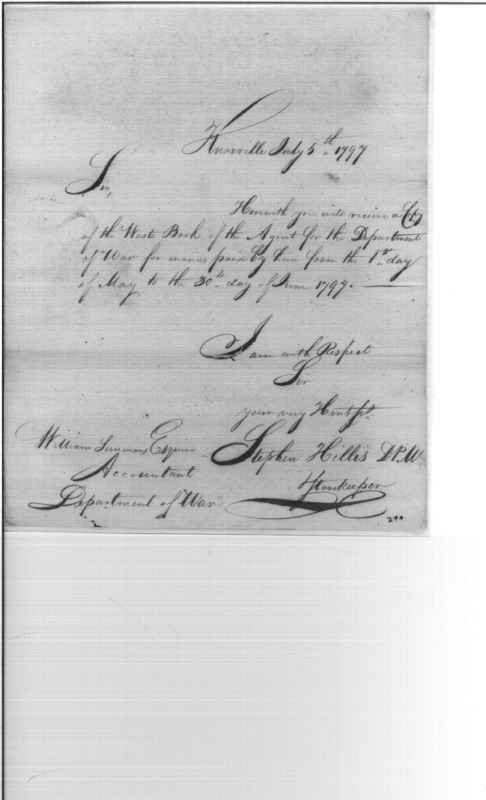 Knoxville July 5th 1797
Sir,
Herewith you will receive a Copy
of the Waste Book of the Agent for the Department
of War for monies paid by him from the 1st day
of May to the 30th day of June 1797.
I am with Respect
Sir
your very Hum
William Simmons Esquire
Stephen Hillis D.P.W.
Accountant
Storekeeper
Department of War